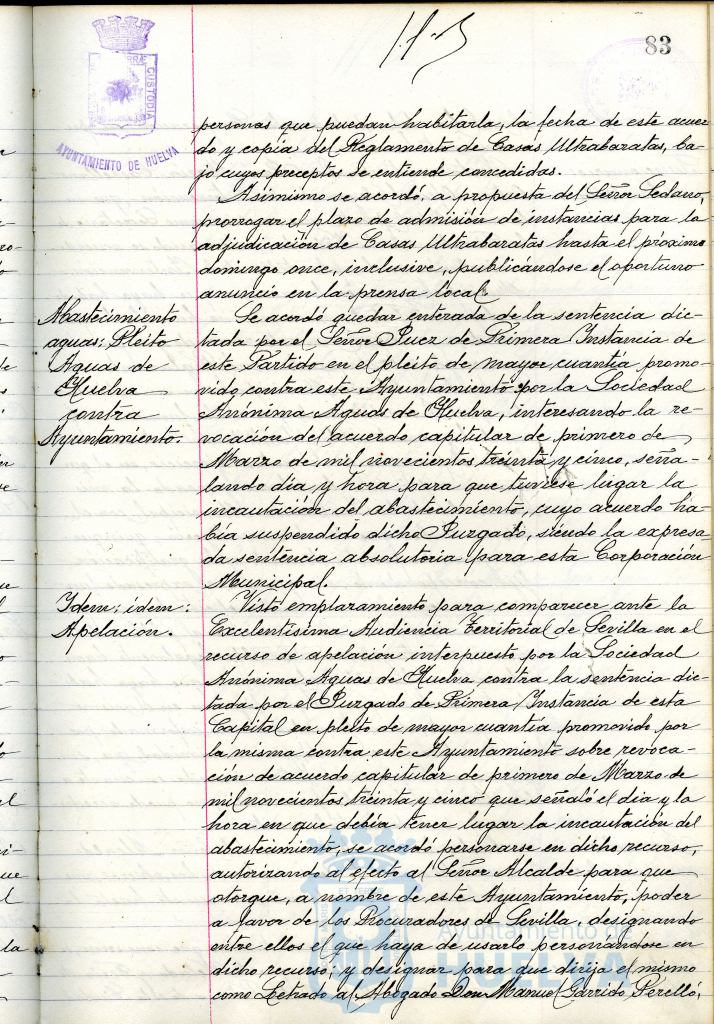 83
CUSTODIA
AYUNTAMIENTO DE HUELVA
personas que puedan habitarla, la fecha de este acuer
do y copia del Reglamento de Casas Ultrabaratas, ba-
jo cuyos preceptos se entiende concedidas.
Asimismo se acordó, a propuesta del Señor Sedano,
prorrogar el plazo de admisión de instancias para la
adjudicación de Casas Ultrabaratas hasta el próximo
domingo once, inclusive, publicándose el oportuno
anuncio en la prensa local.
Abastecimiento
aguas: Pleito
Aguas de
Huelva
contra
Ayuntamiento.
Se acordó quedar enterada de la sentencia dic-
tada por el Señor Juez de Primera Instancia de
este Partido en el pleito de mayor cuantía promo-
vido contra este Ayuntamiento por la Sociedad
Anónima Aguas de Huelva, interesando la re-
vocación del acuerdo capitular de primero de
Marzo de mil novecientos treinta y cinco, seña-
lando día y hora para que tuviese lugar la
incautación del abastecimiento, cuyo acuerdo ha-
bía suspendido dicho Juzgado, siendo la expresa
da sentencia absolutoria para esta Corporación
Municipal.
Idem: idem:
Apelación.
Visto emplazamiento para comparecer ante la
Excelentísima Audiencia Territorial de Sevilla en el
recurso de apelación interpuesto por la Sociedad
Anónima Aguas de Huelva contra la sentencia dic-
tada por el Juzgado de Primera Instancia de esta
Capital en pleito de mayor cuantía promovido por
la misma contra este Ayuntamiento sobre revoca-
ción de acuerdo capitular de primero de Marzo de
mil novecientos treinta y cinco que señaló el dia y la
hora en que debía tener lugar la incautación del
abastecimiento, se acordó personarse en dicho recurso,
autorizando al efecto al Señor Alcalde para que
otorgue, a nombre de este Ayuntamiento, poder
a favor de los Procuradores de Sevilla, designando
entre ellos el que haya de usarlo personándose en
dicho recurso; y designar para que dirija el mismo
como Letrado al Abogado Don Manuel Garrido Perelló,
Ayuntamiento de
HUELVA